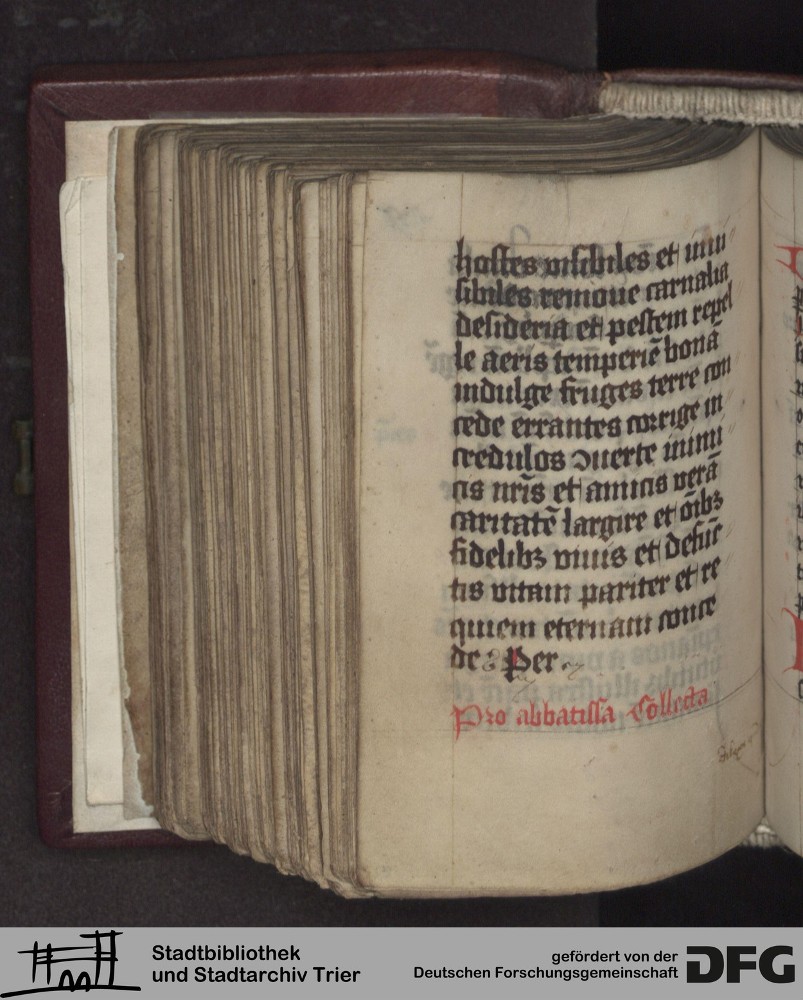 hostes visibiles et inui
sibiles remoue carnalia
desideria et pestem repel
le aeris temperiē bonā
indulge fruges terre con
cede errantes corrige in
credulos ꝯuerte inimi
cis nr̄is et amicis verā
caritatē largire et oīb3
fidelib3 viuis et defūc
tis vitam pariter et re
quiem eternam conce
de Per
Pro abbatissa Collecta
Stadtbibliothek
und Stadtarchiv Trier
gefördert von der
Deutschen Forschungsgemeinschaft
DFG